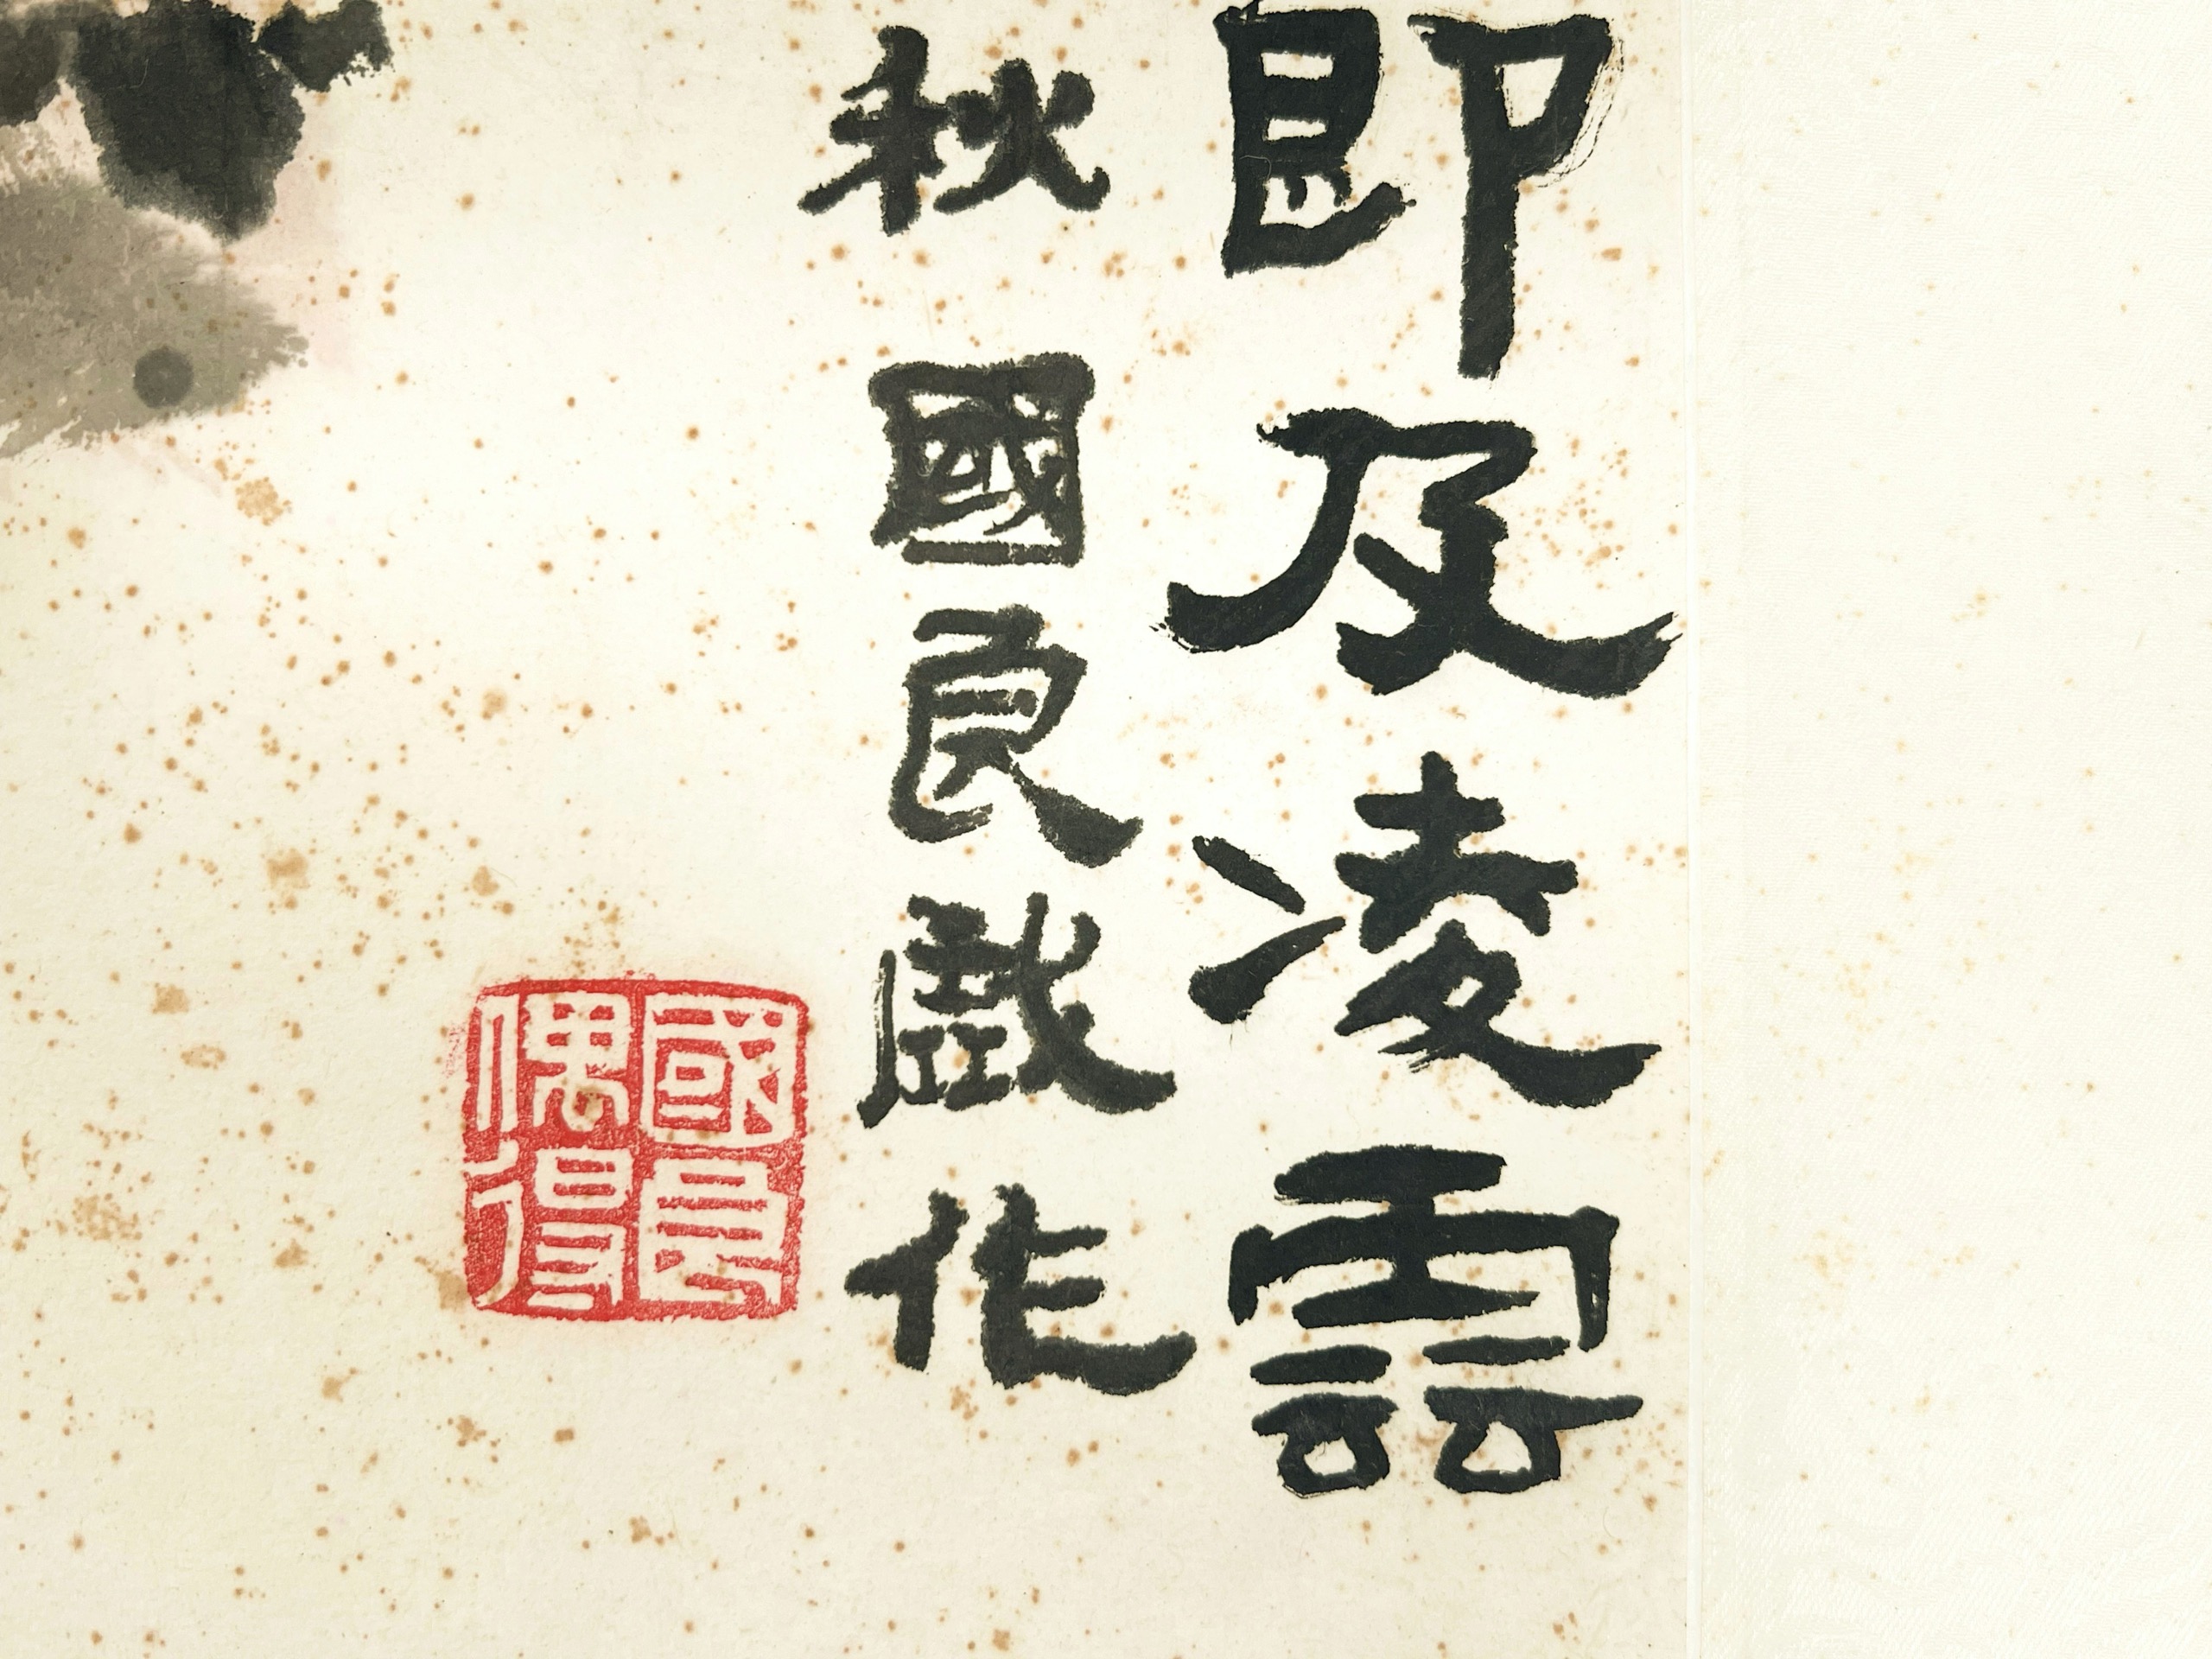 即及凌雲
秋國良戲作
國良
偶得